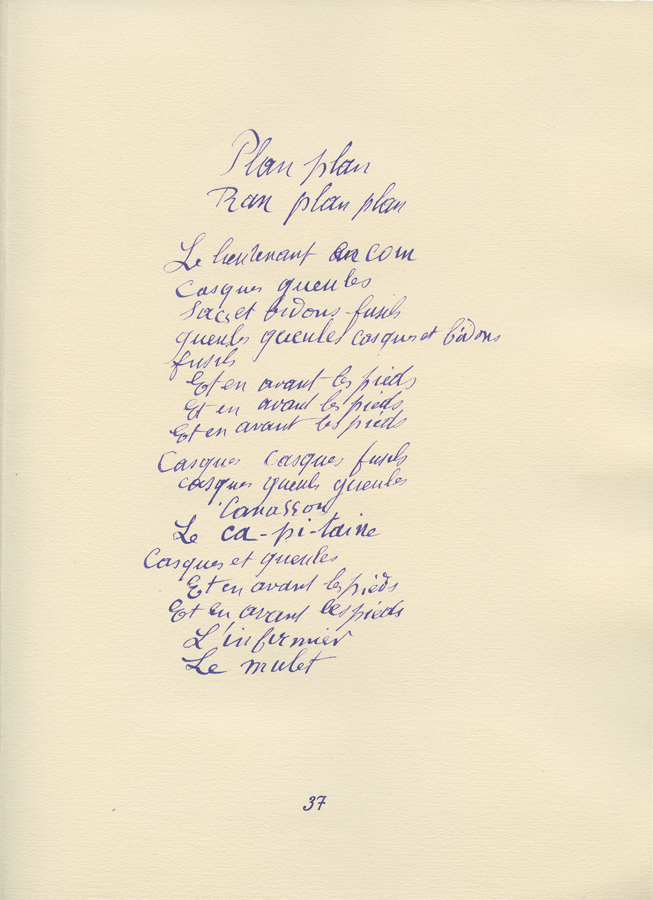 Plan plan
Ran plan plan
Le lieutenant
Casques gueules
Sacs et bidons fusils
gueules gueules casques et bidons
fusils
Et en avant les pieds
Et en avant les pieds
Et en avant les pieds
Casques casques fusils
casques gueules gueules
Canasson
Le ca-pi-taine
Casques et gueules
Et en avant les pieds
Et en avant les pieds
L'infirmier
Le mulet
37